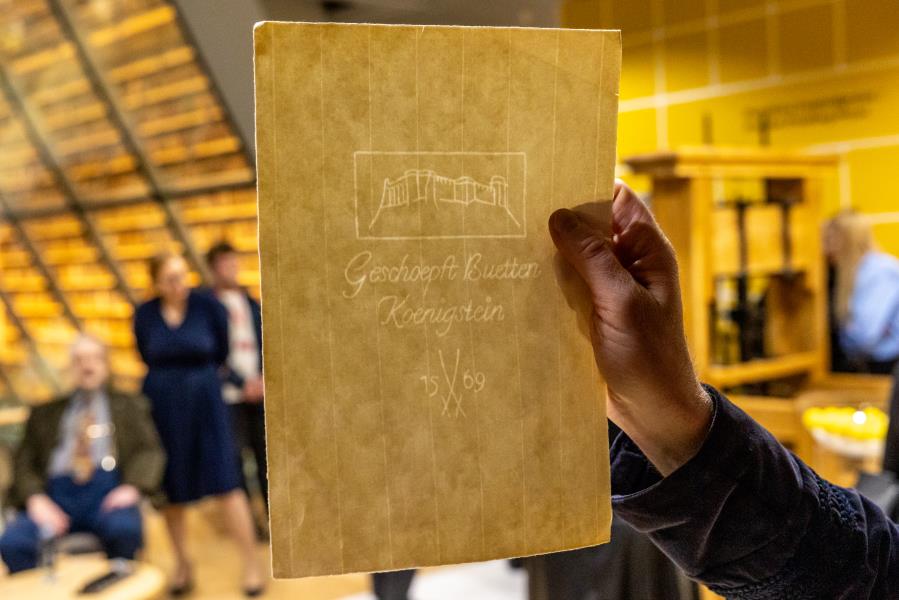 Geschoepft Buetten
Koenigstein
1569